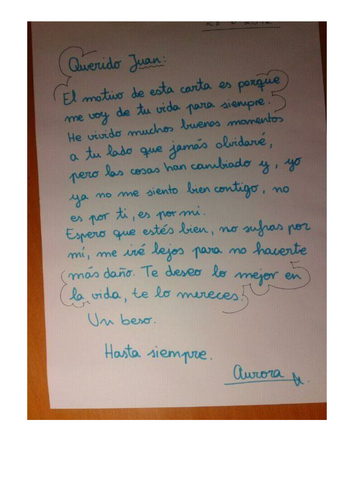 Querido Juan:
El motivo de esta carta es porque
me voy de tu vida para siempre.
He vivido muchos buenos momentos
a tu lado que jamás olvidaré,
pero las cosas han cambiado y, yo
ya no me siento bien contigo, no
es por ti, es por mi.
Espero que estés bien, no sufras por
mí, me iré lejos para no hacerte
más daño. Te deseo lo mejor en
la vida, te lo mereces.
Un beso.
Hasta siempre.
Aurora